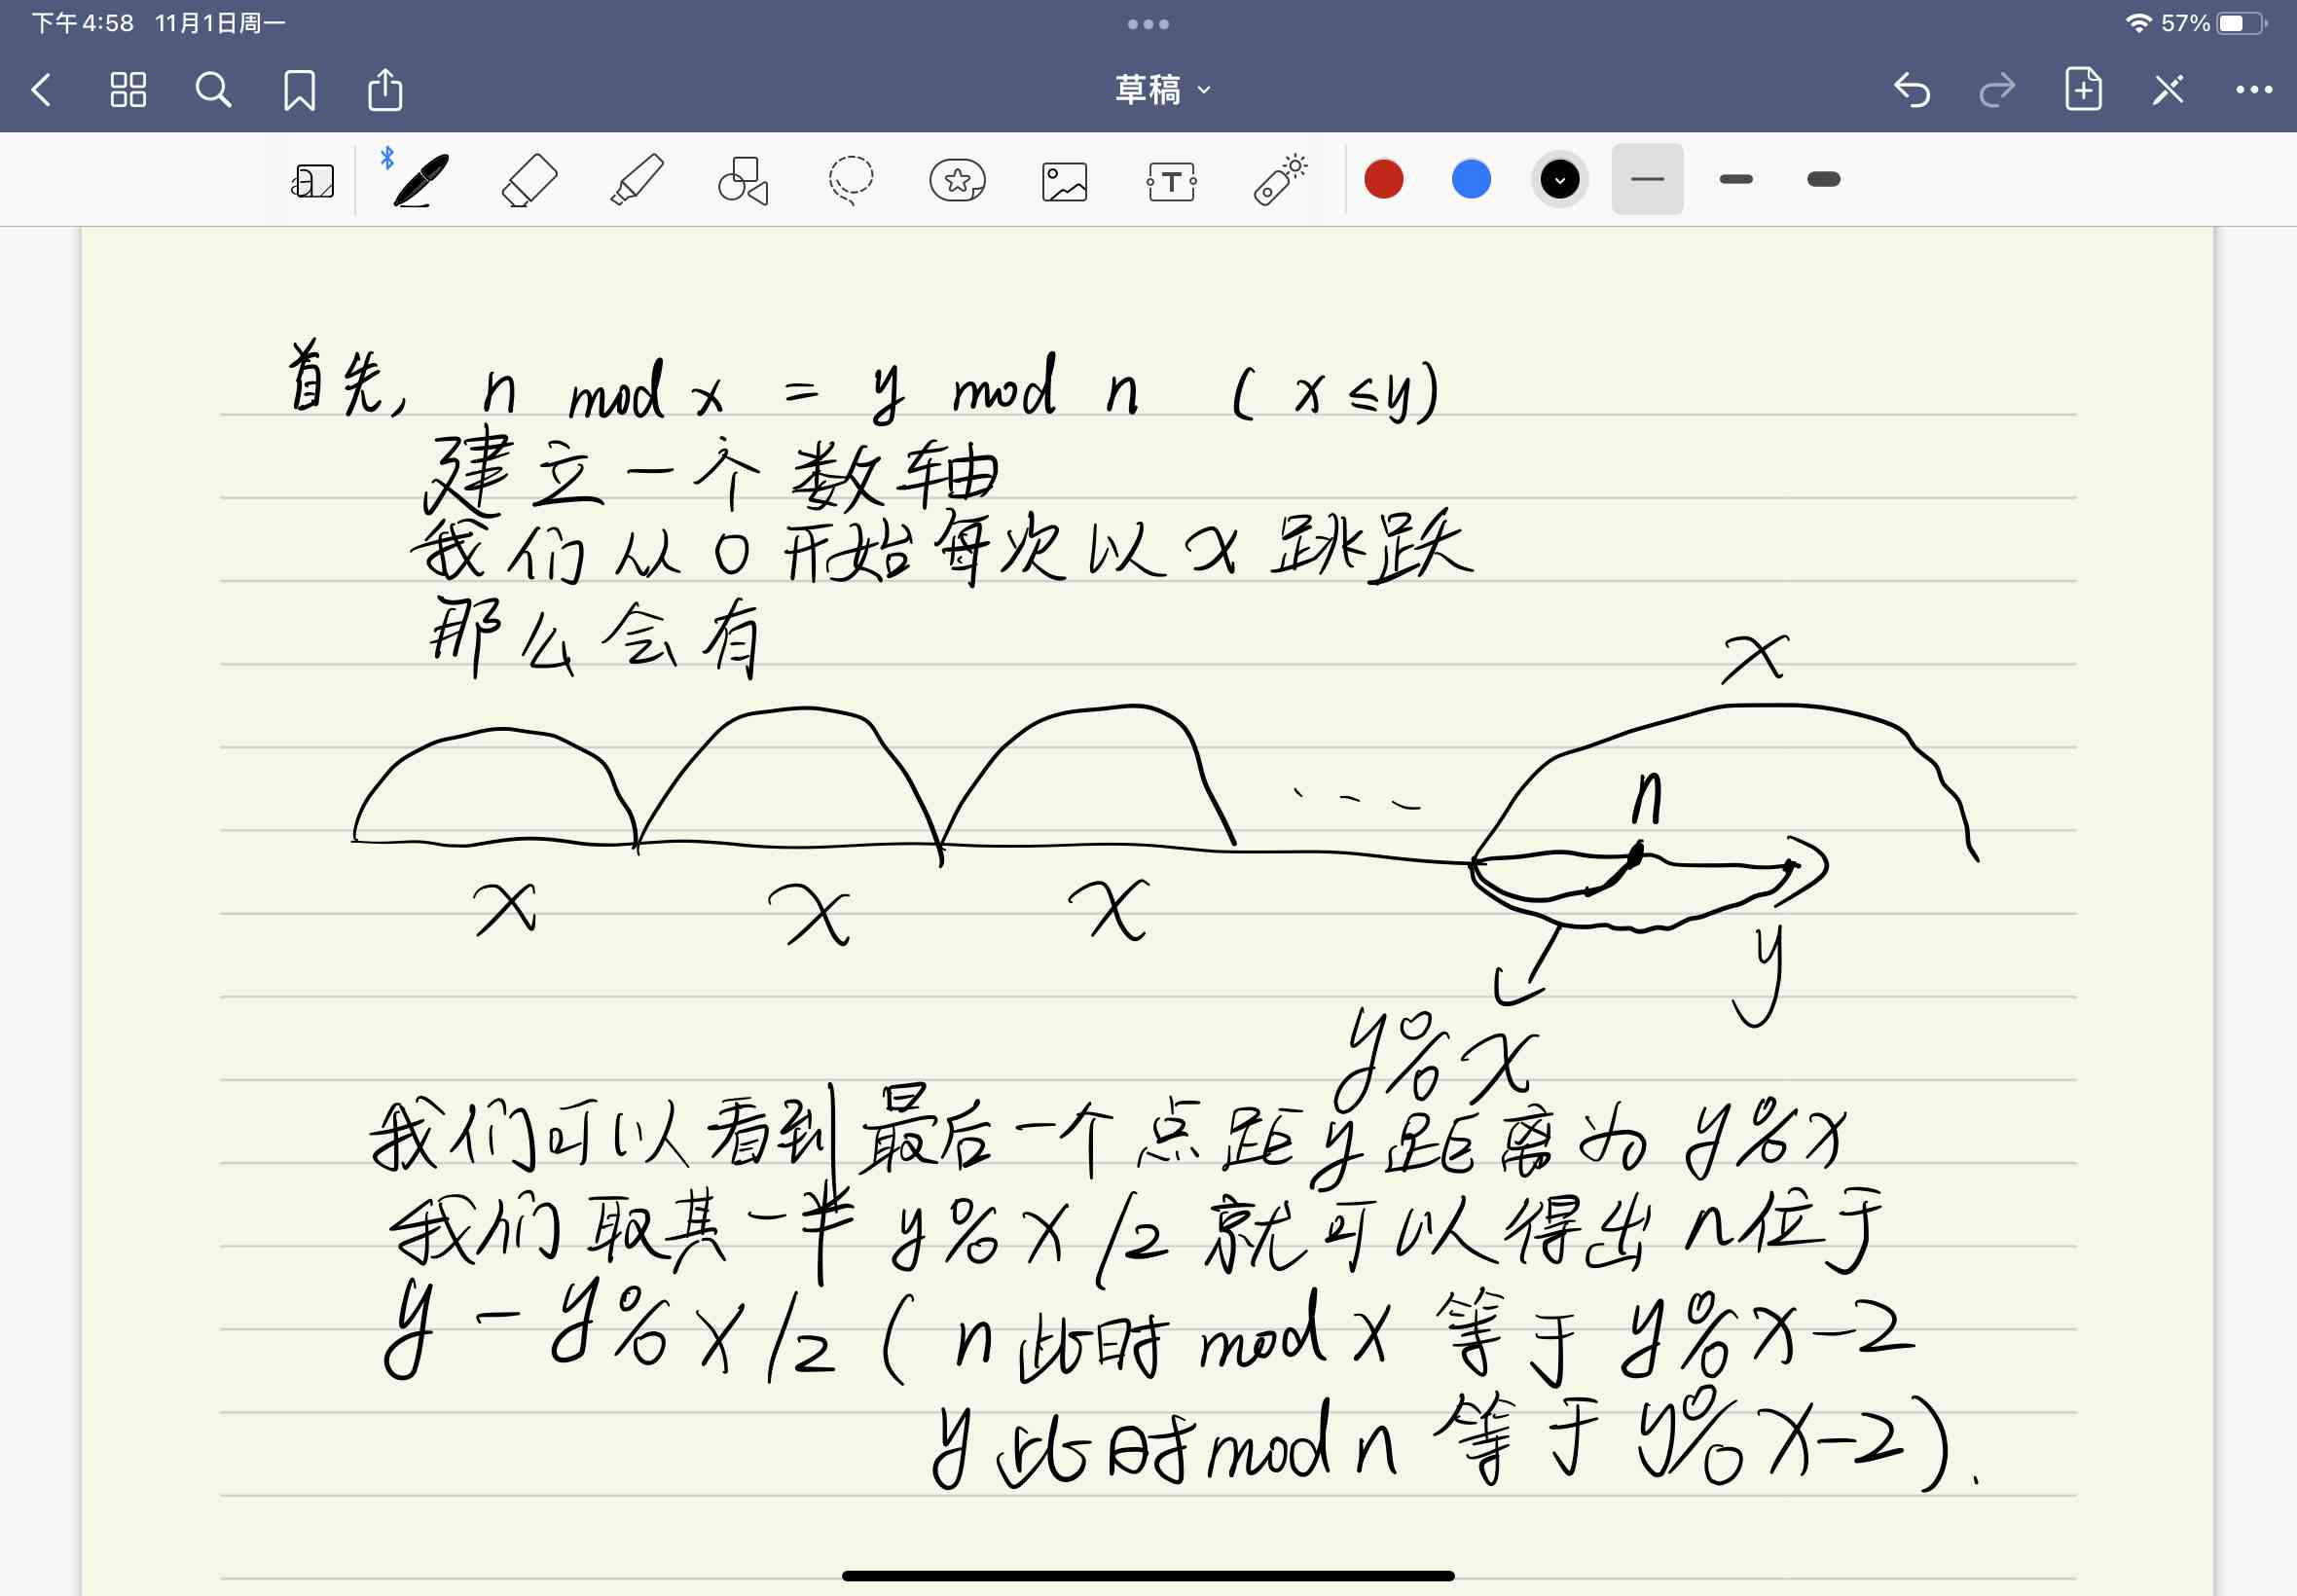 下午4:58 11月1日周一
57%
草稿
T
首先, n mod x = y mod n ( x ≤ y)
建立一个数轴
我们从0开始每次以x跳跃
那么会有
x
n
x x x
y
y%x
我们可以看到最后一个点距y距离为y%x
我们取其一半 y%x/2 就可以得出n位于
y - y%x/2 ( n此时 mod x 等于 y%x-2
y此时mod n 等于 y%x-2).